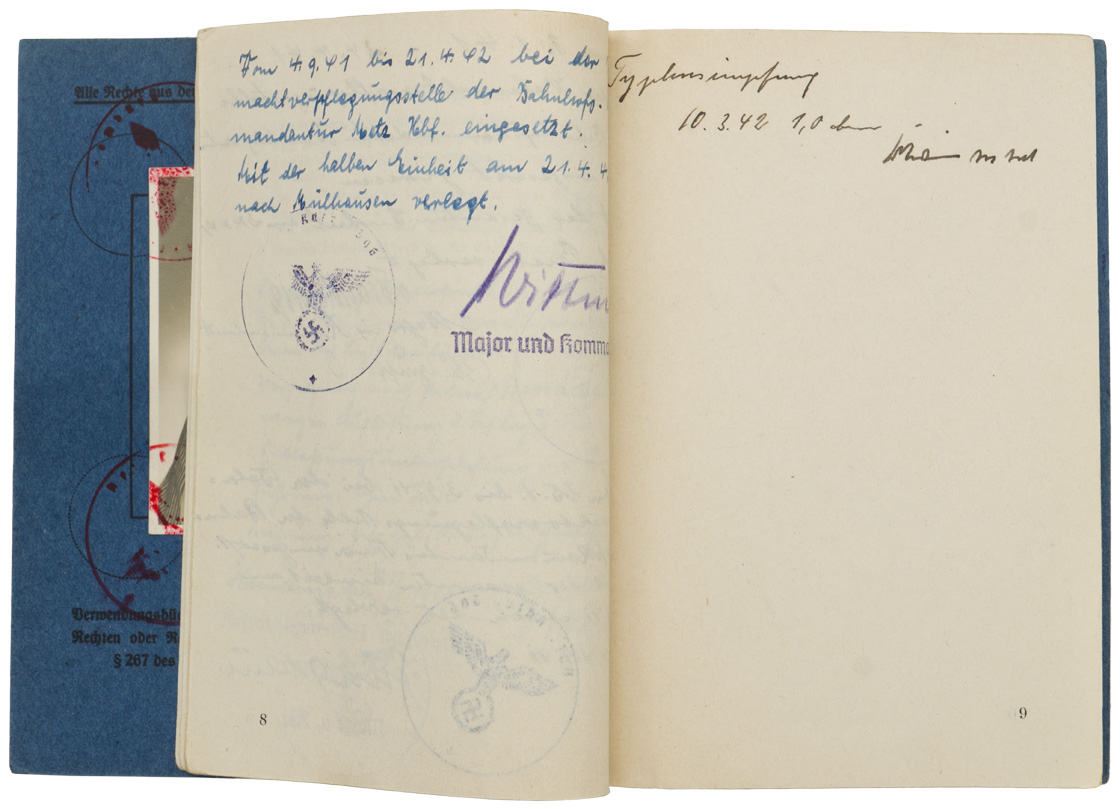 Alle Rechte aus der
Vom 4.9.41 bis 21.4.42 bei der
machtverpflegungsstelle der Bahnhofs-
mandantur Metz Hbf. eingesetzt.
Mit der halben Einheit am 21.4.4
nach Mülhausen verlegt.
Major und Komma
Verwendungsbü
Rechten oder R
§ 267 des
8
Typhusimpfung
10.3.42 1,0 ccm
9